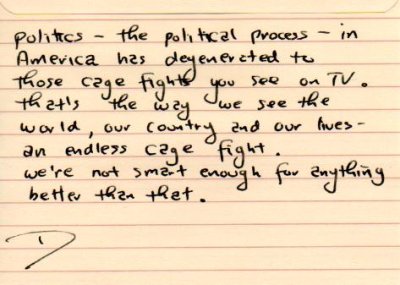 politics – the political process – in
America has degenerated to
those cage fights you see on TV.
that's the way we see the
world, our country and our lives –
an endless cage fight.
we're not smart enough for anything
better than that.